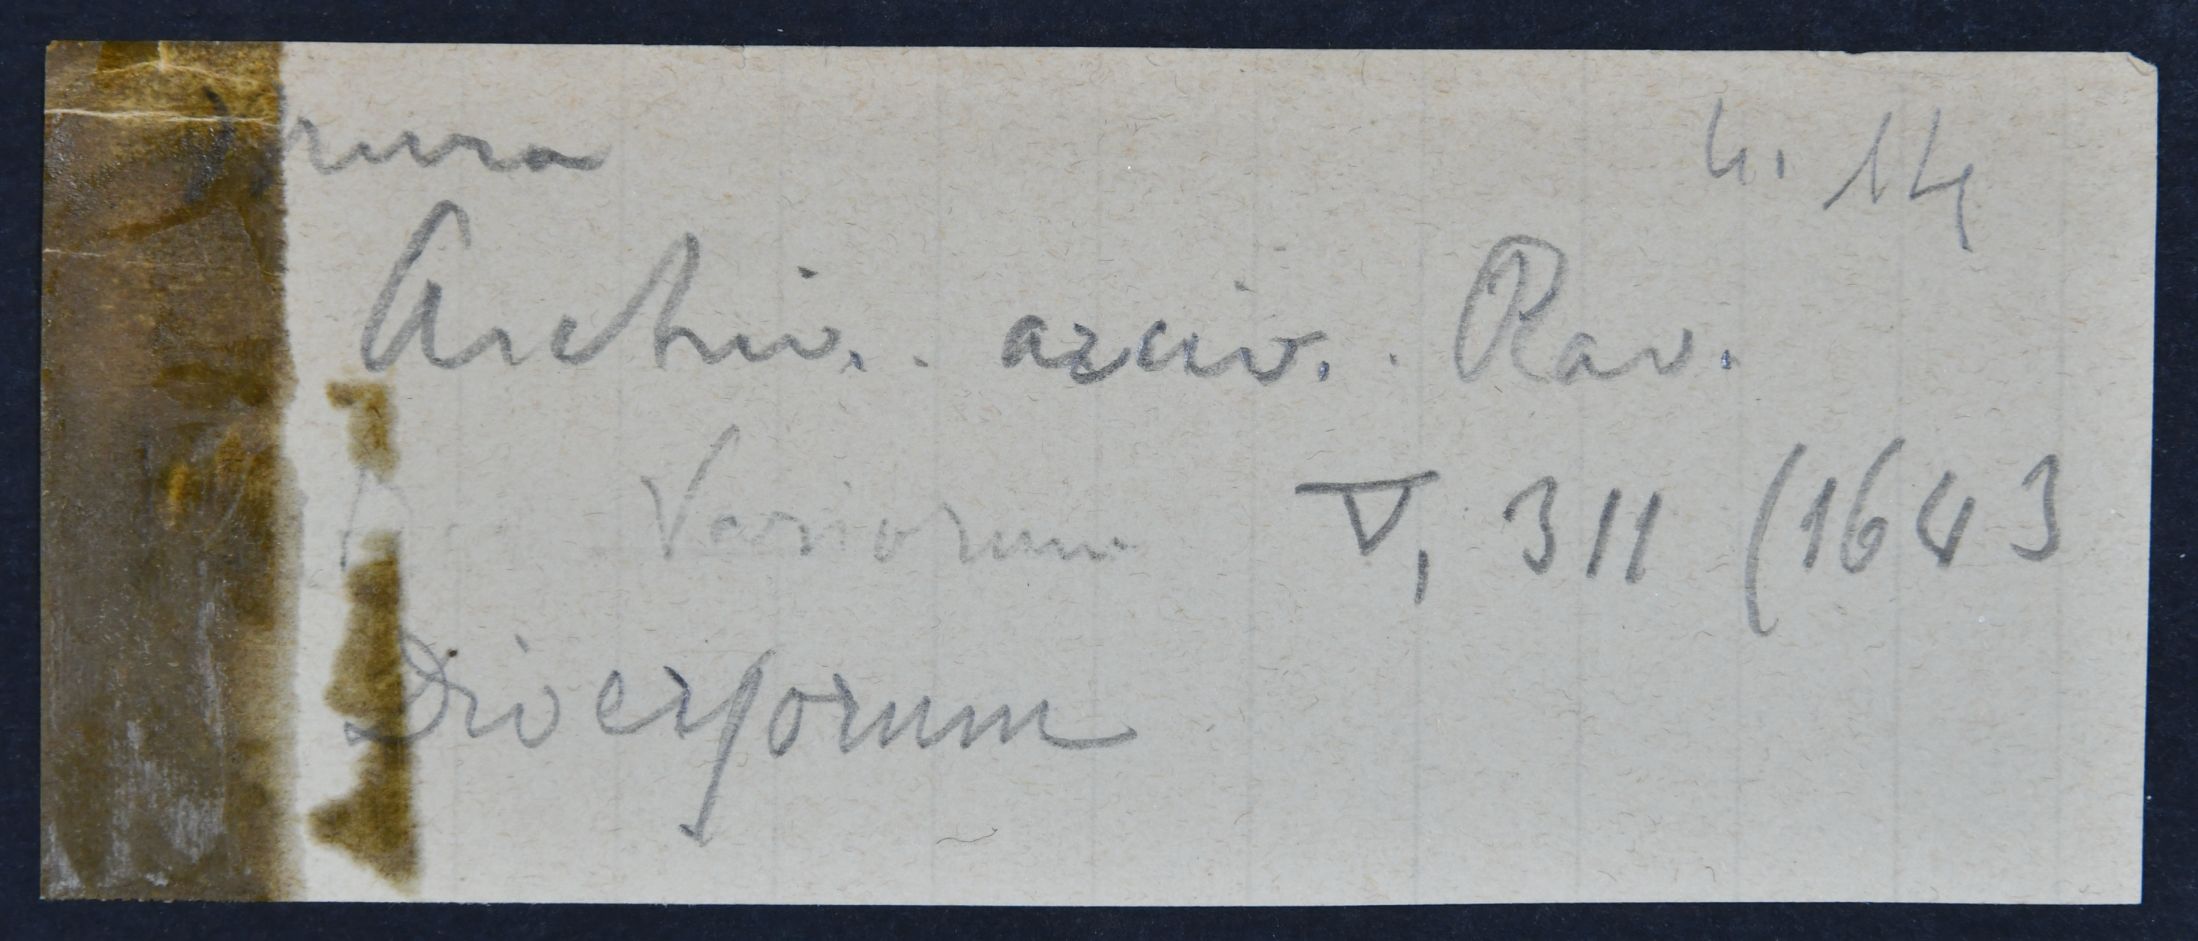 n. 14
Archiv. arciv. Rav.
Variorum V, 311 (1643
Diversorum